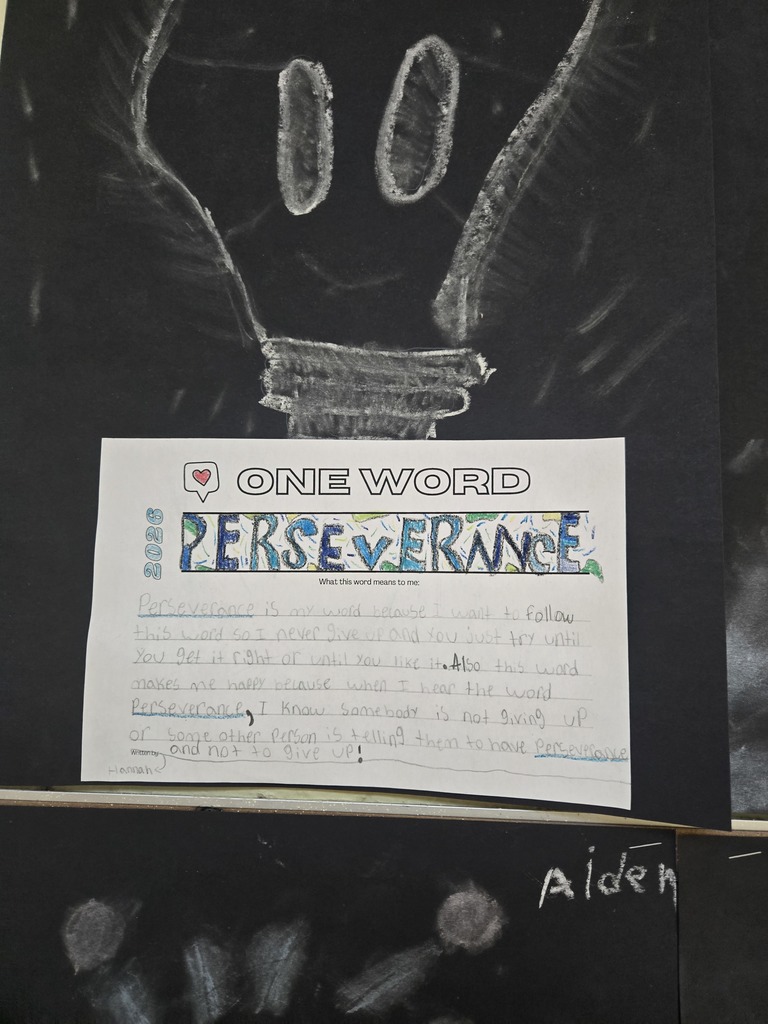 ONE WORD
2026
PERSEVERANCE
What this word means to me:
Perseverance is my word because I want to Follow
this word so I never give up and you just try until
you get it right or until you like it. Also this word
makes me happy because when I hear the word
Perseverance, I know somebody is not giving up
or some other person is telling them to have Perseverance
and not to give up!
Written by
Hannah
Aiden